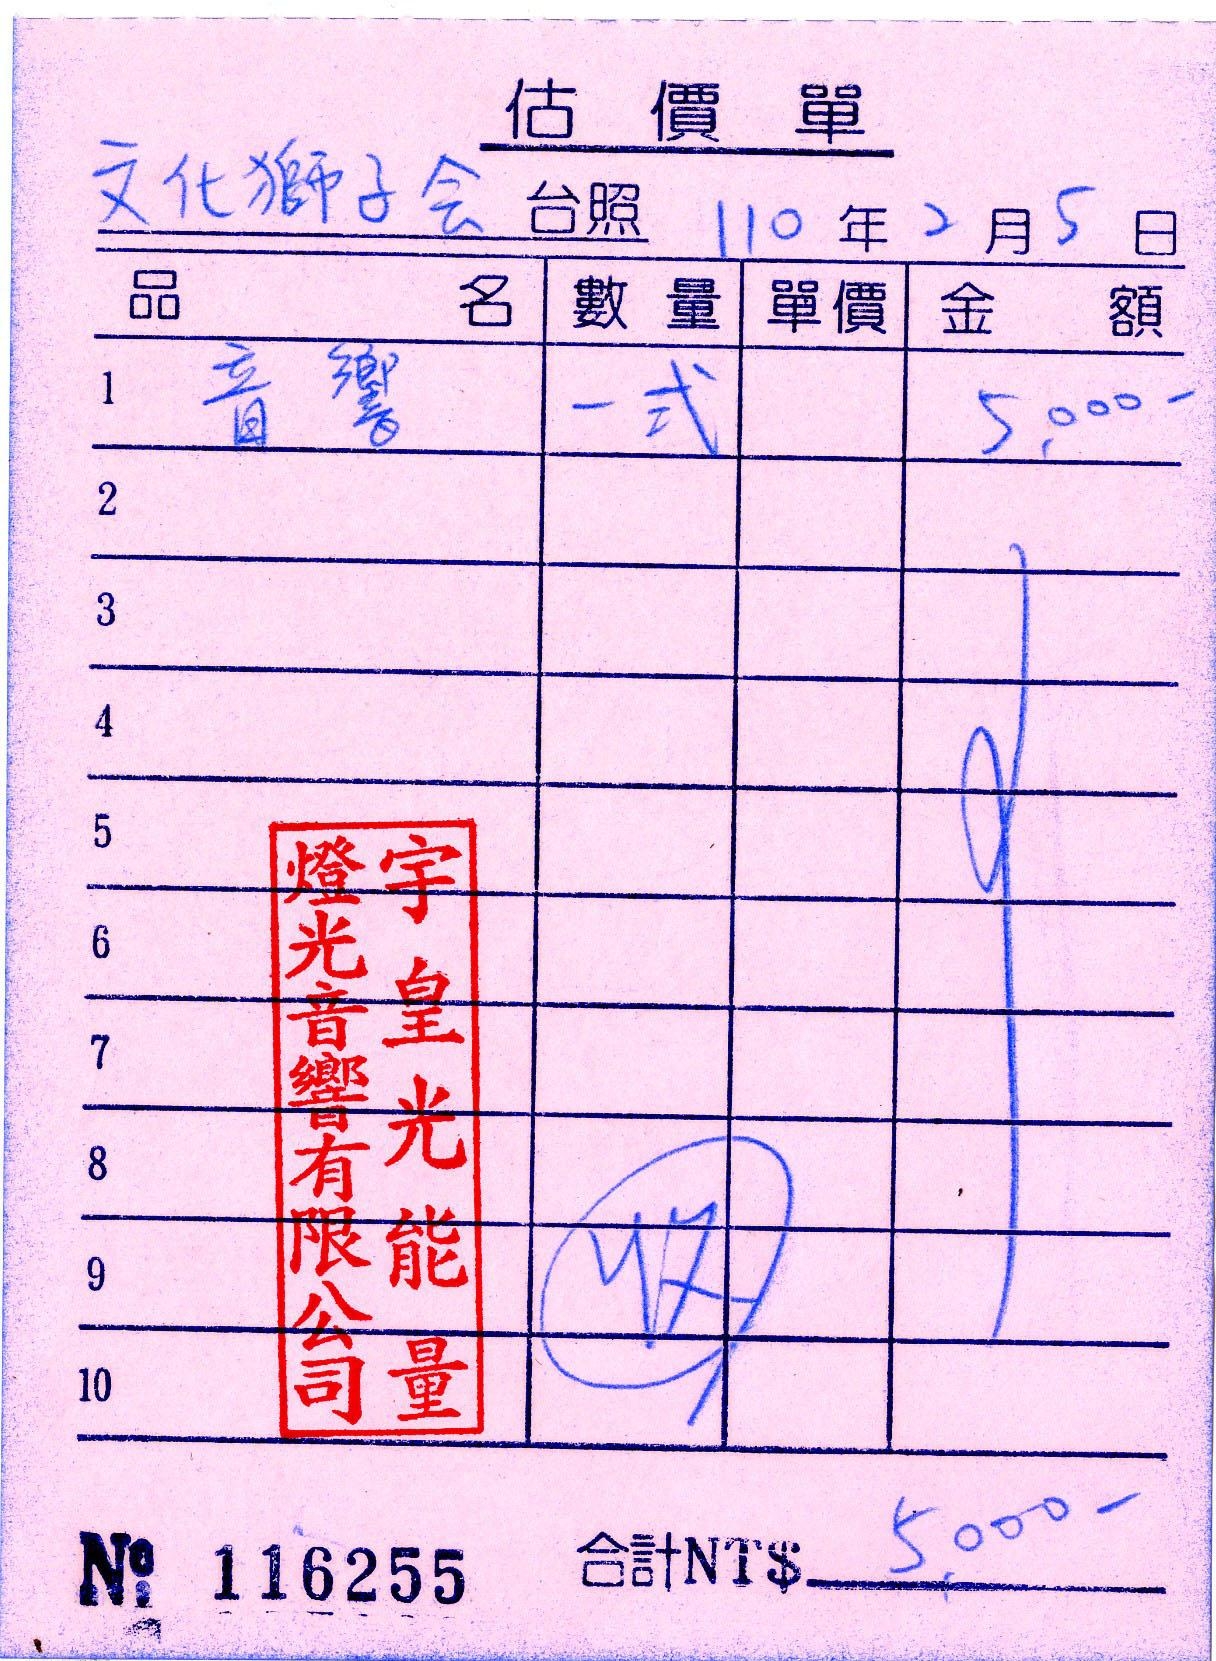 估價單
文化獅子会 台照 110年2月5日
品名 數量 單價 金額
1 音響 一式 5,000-
2
3
4
5
6
7
8
9
10
宇皇光能量
燈光音響有限公司
收
№ 116255 合計NT$ 5,000-